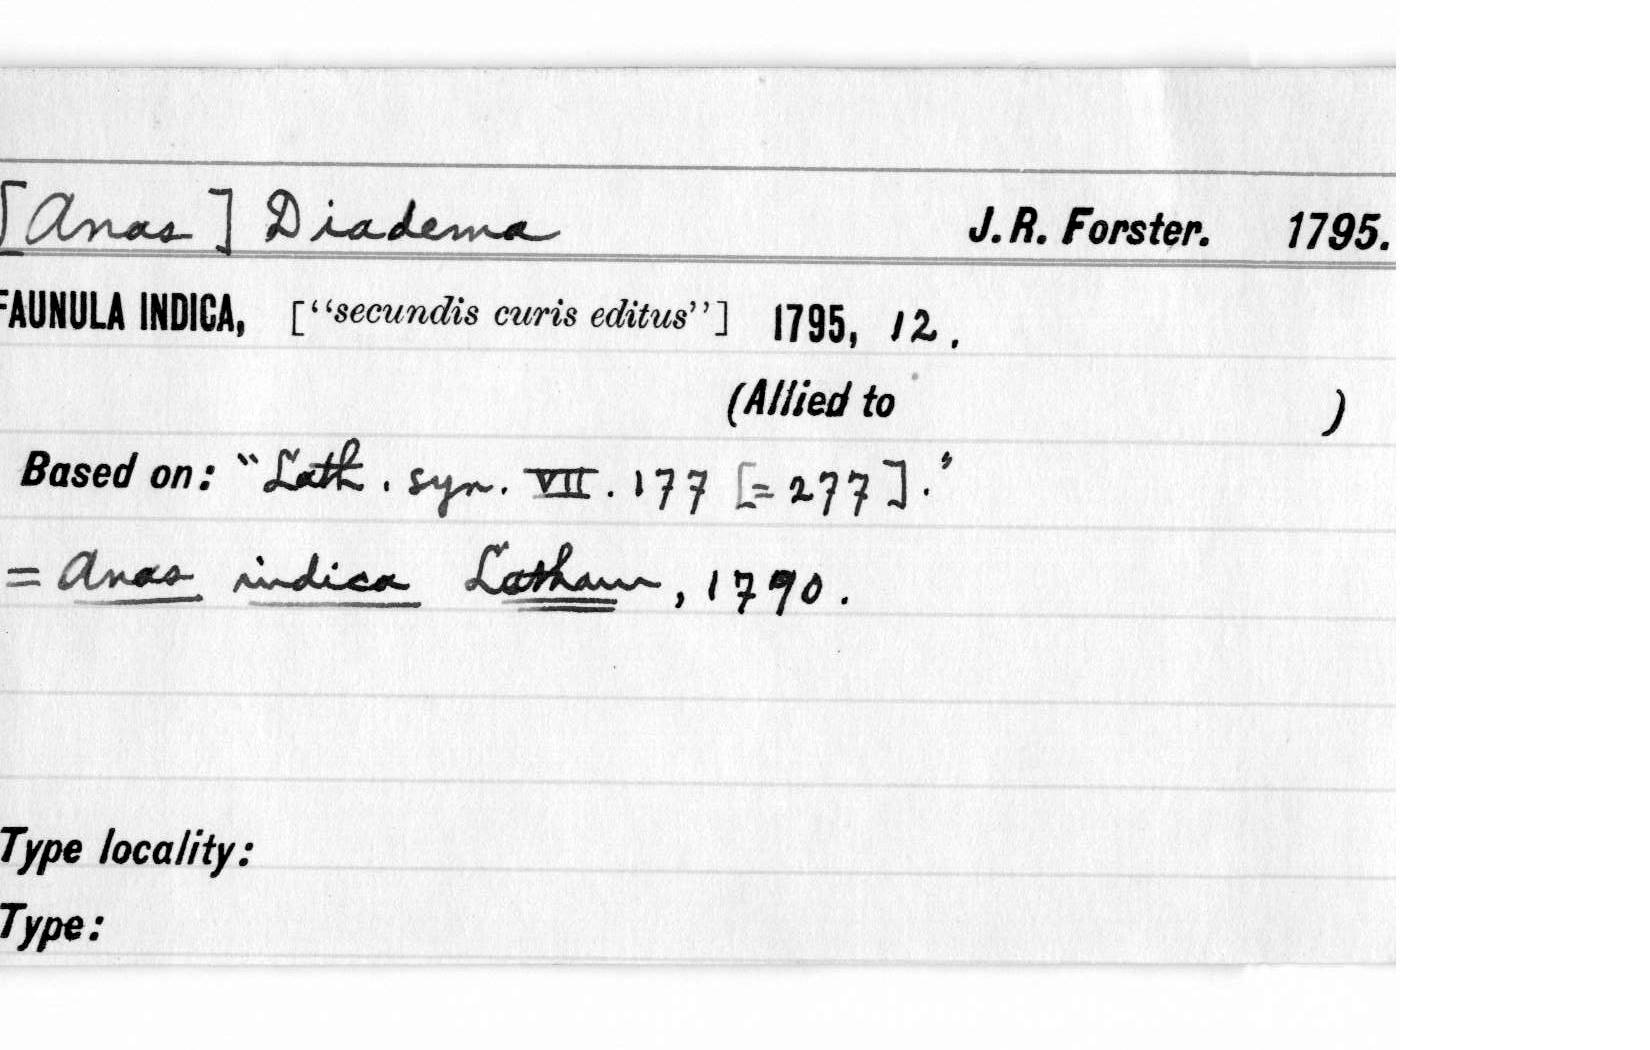 [Anas] Diadema J. R. Forster. 1795.
FAUNULA INDICA, [“secundis curis editus”] 1795, 12.
(Allied to )
Based on: “Lath. syn. VII. 177 [=277].”
= Anas indica Latham, 1790.
Type locality:
Type: